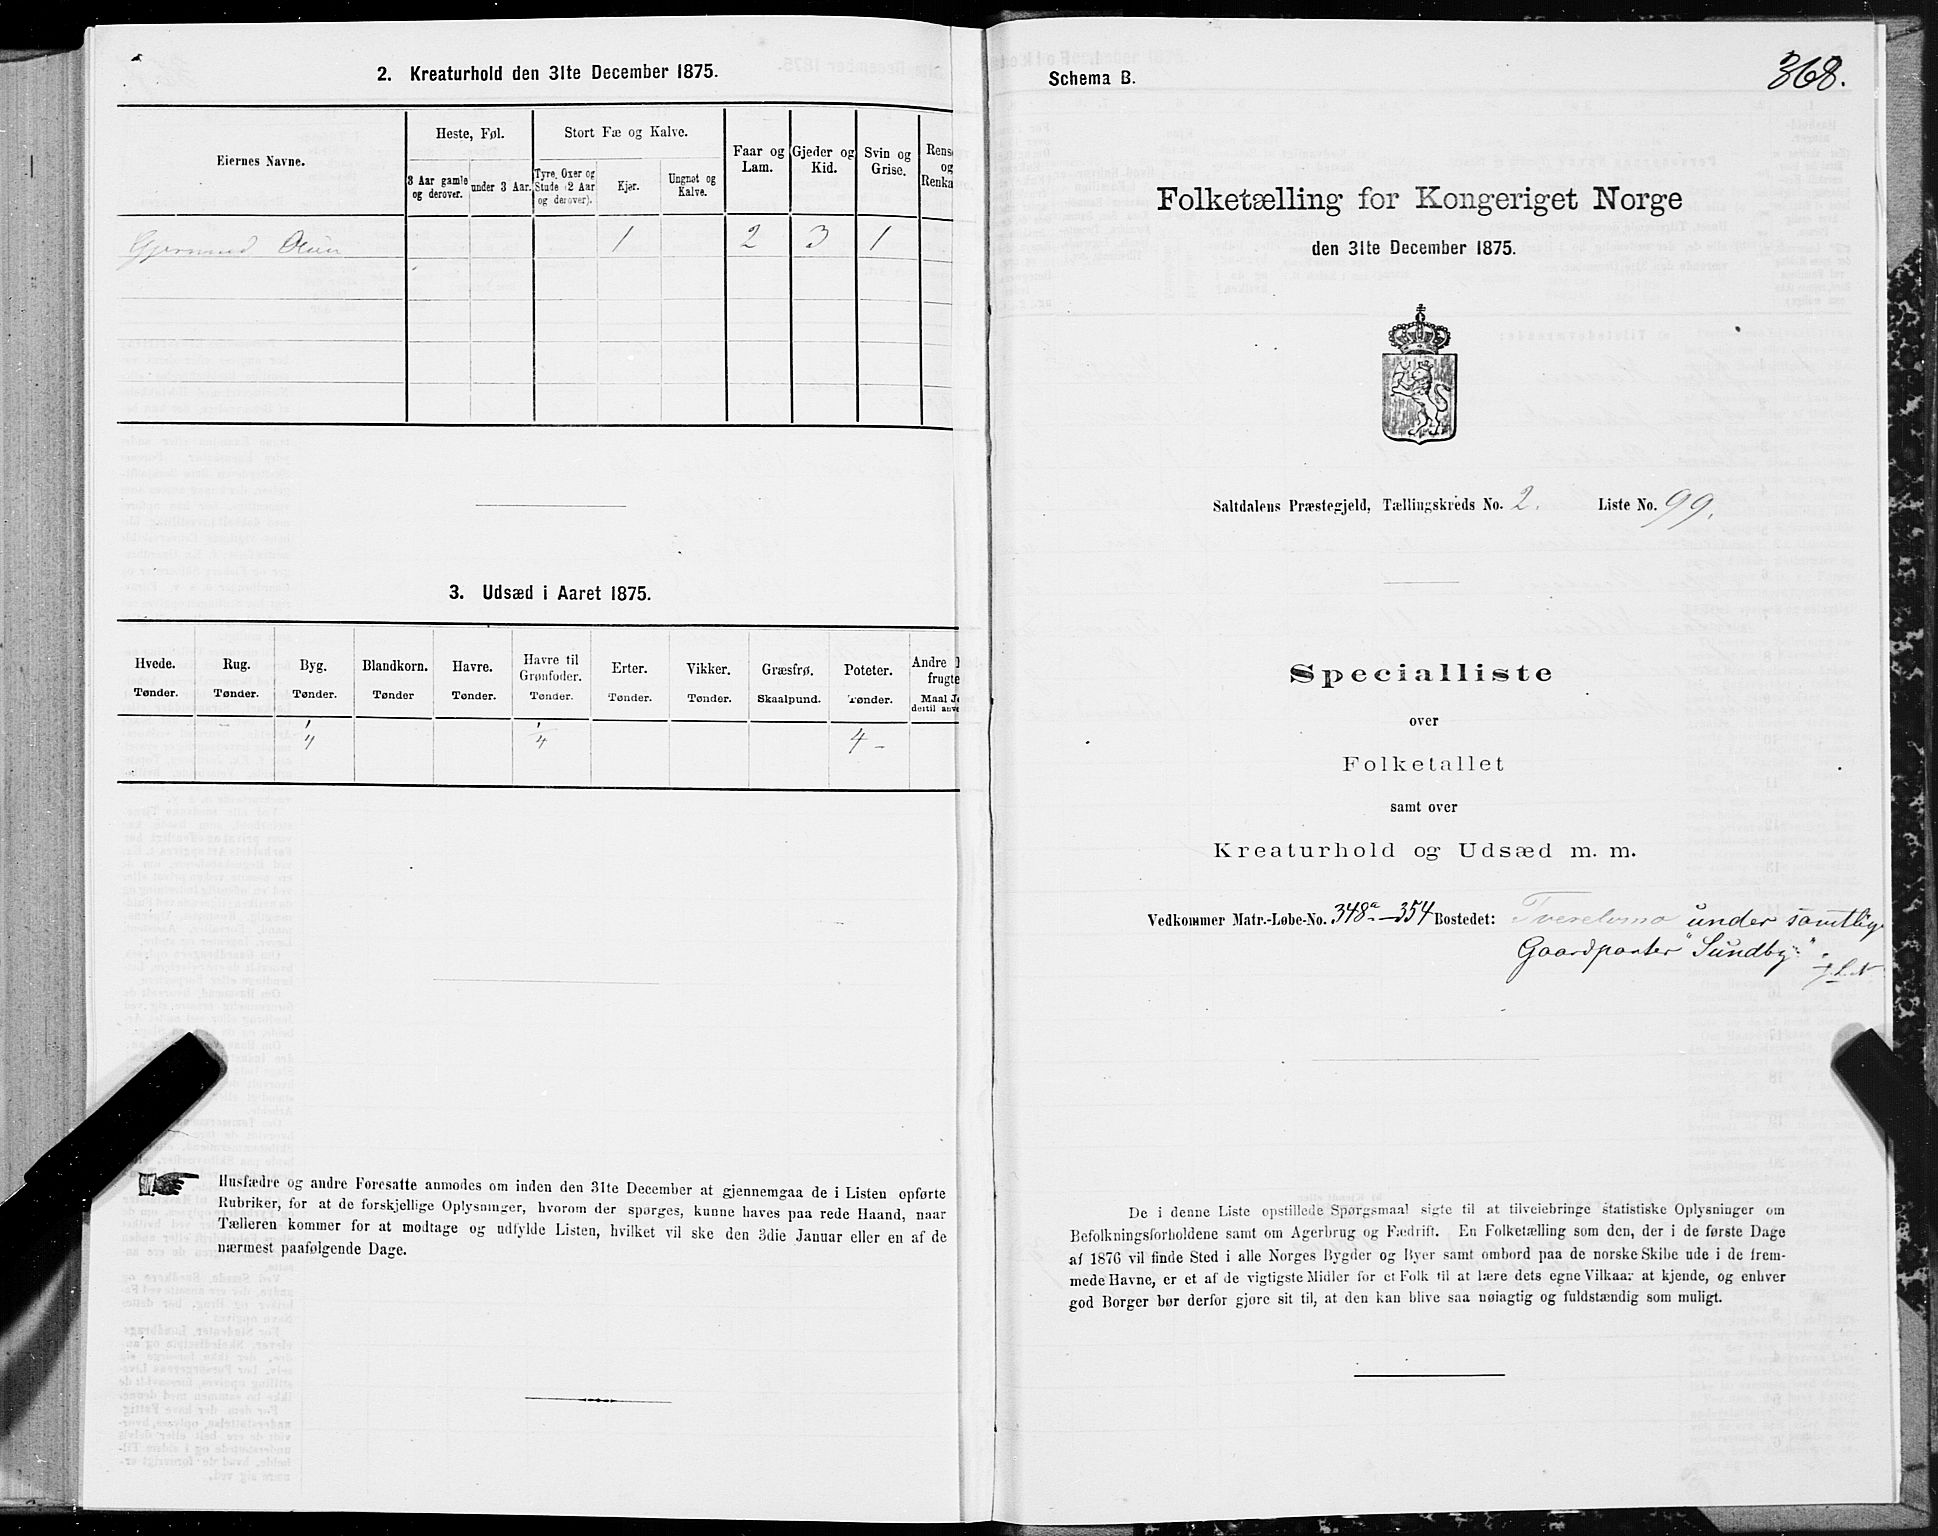 2. Kreaturhold den 31te December 1875.
Eiernes Navne.
Heste, Føl.
Stort Fæ og Kalve.
Faar og Lam.
Gjeder og Kid.
Svin og Grise.
Rens
og
Renka
3 Aar gamle og derover.
under 3 Aar.
Tyre, Oxer og Stude (2 Aar og derover).
Kjør.
Ungnøt og Kalve.
Gjermund 1 2 3 1
3. Udsæd i Aaret 1875.
Hvede. Rug. Byg. Blandkorn. Havre. Havre til Grønfoder. Erter. Vikker. Græsfrø. Poteter. Andre
frugte
Tønder. Tønder. Tønder. Tønder Tønder. Tønder. Tønder. Tønder. Skaalpund. Tønder. Maal J
destil anve
1/4 1/4 4 -
Husfædre og andre Foresatte anmodes om inden den 31te December at gjennemgaa de i Listen opførte
Rubriker, for at de forskjellige Oplysninger, hvorom der spørges, kunne haves paa rede Haand, naar
Tælleren kommer for at modtage og udfylde Listen, hvilket vil ske den 3die Januar eller en af de
nærmest paafølgende Dage.
Schema B.
368.
Folketælling for Kongeriget Norge
den 31te December 1875.
Saltdalens Præstegjeld, Tællingskreds No. 2. Liste No. 99.
Specialliste
over
Folketallet
samt over
Kreaturhold og Udsæd m. m.
Vedkommer Matr.-Løbe-No. 348a - 354 Bostedet: under samtlige
Gaardparter "Sundby"
De i denne Liste opstillede Spørgsmaal sigte til at tilveiebringe statistiske Oplysninger om
Befolkningsforholdene samt om Agerbrug og Fædrift. En Folketælling som den, der i de første Dage
af 1876 vil finde Sted i alle Norges Bygder og Byer samt ombord paa de norske Skibe ude i de frem-
mede Havne, er et af de vigtigste Midler for et Folk til at lære dets egne Vilkaar at kjende, og enhver
god Borger bør derfor gjøre sit til, at den kan blive saa nøiagtig og fuldstændig som muligt.